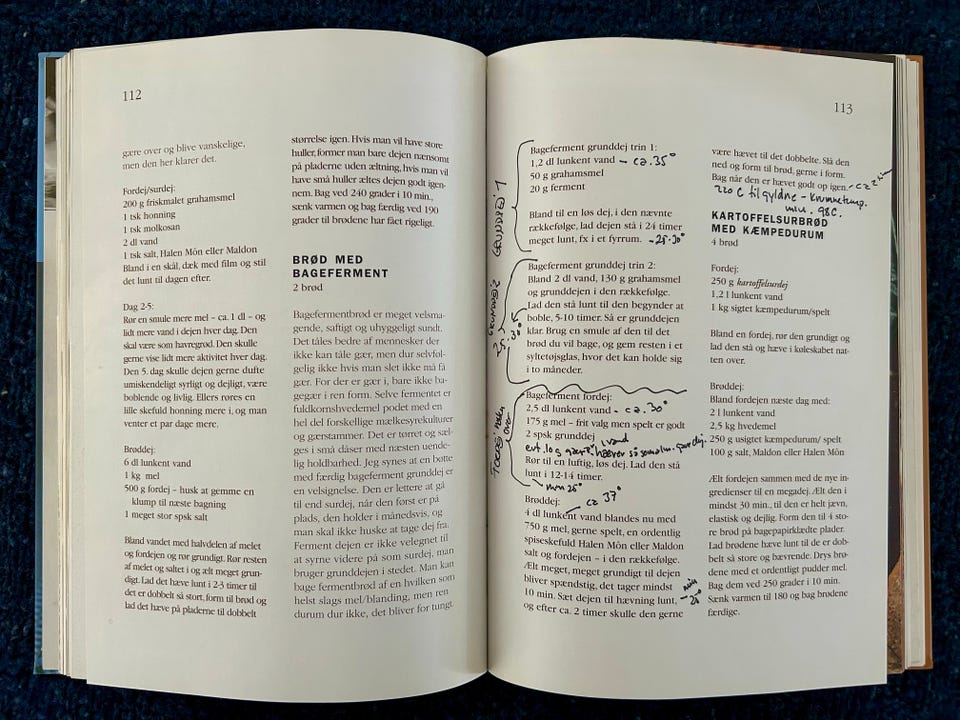 112
gære over og blive vanskelige,
men den her klarer det.
Fordej/surdej:
200 g friskmalet grahamsmel
1 tsk honning
1 tsk molkosan
2 dl vand
1 tsk salt, Halen Môn eller Maldon
Bland i en skål, dæk med film og stil
det lunt til dagen efter.
Dag 2-5:
Rør en smule mere mel – ca. 1 dl – og
lidt mere vand i dejen hver dag. Den
skal være som havregrød. Den skulle
gerne vise lidt mere aktivitet hver dag.
Den 5. dag skulle dejen gerne dufte
umiskendeligt syrligt og dejligt, være
boblende og livlig. Ellers røres en
lille skefuld honning mere i, og man
venter et par dage mere.
Brøddej:
6 dl lunkent vand
1 kg mel
500 g fordej – husk at gemme en
klump til næste bagning
1 meget stor spsk salt
Bland vandet med halvdelen af melet
og fordejen og rør grundigt. Rør resten
af melet og saltet i og ælt meget grun-
digt. Lad det hæve lunt i 2-3 timer til
det er dobbelt så stort, form til brød og
lad det hæve på pladerne til dobbelt
størrelse igen. Hvis man vil have store
huller, former man bare dejen nænsomt
på pladerne uden æltning, hvis man vil
have små huller æltes dejen godt igen-
nem. Bag ved 240 grader i 10 min.,
sænk varmen og bag færdig ved 190
grader til brødene har fået rigeligt.
BRØD MED
BAGEFERMENT
2 brød
Bagefermentbrød er meget velsma-
gende, saftigt og uhyggeligt sundt.
Det tåles bedre af mennesker der
ikke kan tåle gær, men dur selvføl-
gelig ikke hvis man slet ikke må få
gær. For der er gær i, bare ikke ba-
gegær i ren form. Selve fermentet er
fuldkomshvedemel podet med en
hel del forskellige mælkesyrekulturer
og gærstammer. Det er tørret og sæl-
ges i små dåser med næsten uende-
lig holdbarhed. Jeg synes at en bøtte
med færdig bageferment grunddej er
en velsignelse. Den er lettere at gå
til end surdej, når den først er på
plads, den holder i månedsvis, og
man skal ikke huske at tage dej fra.
Ferment dejen er ikke velegnet til
at syrne videre på som surdej, man
bruger grunddejen i stedet. Man kan
bage fermentbrød af en hvilken som
helst slags mel/blanding, men ren
durum dur ikke, det bliver for tungt.
113
GRUNDDEJ 1
Bageferment grunddej trin 1:
1,2 dl lunkent vand – ca. 35°
50 g grahamsmel
20 g ferment
Bland til en løs dej, i den nævnte
rækkefølge, lad dejen stå i 24 timer
meget lunt, fx i et fyrrum. – 25-30°
GRUNDDEJ 2
25-30°
Bageferment grunddej trin 2:
Bland 2 dl vand, 130 g grahamsmel
og grunddejen i den rækkefølge.
Lad den stå lunt til den begynder at
boble, 5-10 timer. Så er grunddejen
klar. Brug en smule af den til det
brød du vil bage, og gem resten i et
syltetøjsglas, hvor det kan holde sig
i to måneder.
FORDEJ natten over
Bageferment fordej:
2,5 dl lunkent vand – ca. 30°
175 g mel – frit valg men spelt er godt
2 spsk grunddej
i vand
Rør til en luftig, løs dej. Lad den stå
lunt i 12-14 timer.
min 25°
Brøddej: ca 37°
4 dl lunkent vand blandes nu med
750 g mel, gerne spelt, en ordentlig
spiseskefuld Halen Môn eller Maldon
salt og fordejen – i den rækkefølge.
Ælt meget, meget grundigt til dejen
bliver spændstig, det tager mindst
10 min. Sæt dejen til hævning lunt, – min
og efter ca. 2 timer skulle den gerne
være hævet til det dobbelte. Slå den
ned og form til brød, gerne i form.
Bag når den er hævet godt op igen. – ca 2 time
220 C til gyldne – Krummetemp.
min. 98C.
KARTOFFELSURBRØD
MED KÆMPEDURUM
4 brød
Fordej:
250 g kartoffelsurdej
1,2 l lunkent vand
1 kg sigtet kæmpedurum/spelt
Bland en fordej, rør den grundigt og
lad den stå og hæve i køleskabet nat-
ten over.
Brøddej:
Bland fordejen næste dag med:
2 l lunkent vand
2,5 kg hvedemel
250 g usigtet kæmpedurum/ spelt
100 g salt, Maldon eller Halen Môn
Ælt fordejen sammen med de nye in-
gredienser til en megadej. Ælt den i
mindst 30 min., til den er helt jævn,
elastisk og dejlig. Form den til 4 sto-
re brød på bagepapirklædte plader.
Lad brødene hæve lunt til de er dob-
belt så store og bævrende. Drys brø-
dene med et ordentligt pudder mel.
Bag dem ved 250 grader i 10 min.
Sænk varmen til 180 og bag brødene
færdige.